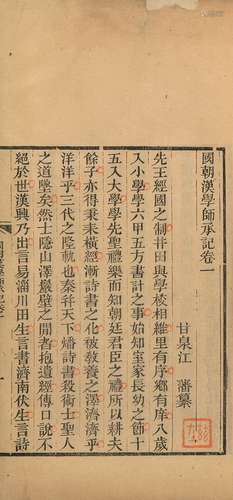 國朝漢學師承記卷一
甘泉江藩纂
先王經國之制井田與學校相維里有序鄉有庠八歲
入小學學六甲五方書計之事始知室家長幼之節十
五入大學學先聖禮樂而知朝廷君臣之禮所以耕夫
餘子亦得秉耒橫經漸詩書之化被敎養之澤濟濟乎
洋洋乎三代之隆軌也秦幷天下燔詩書殺術士聖人
之道墜矣然士隱山澤巖壁之間者抱遺經傳口說不
絕於世漢興乃出言易淄川田生言書濟南伏生言詩